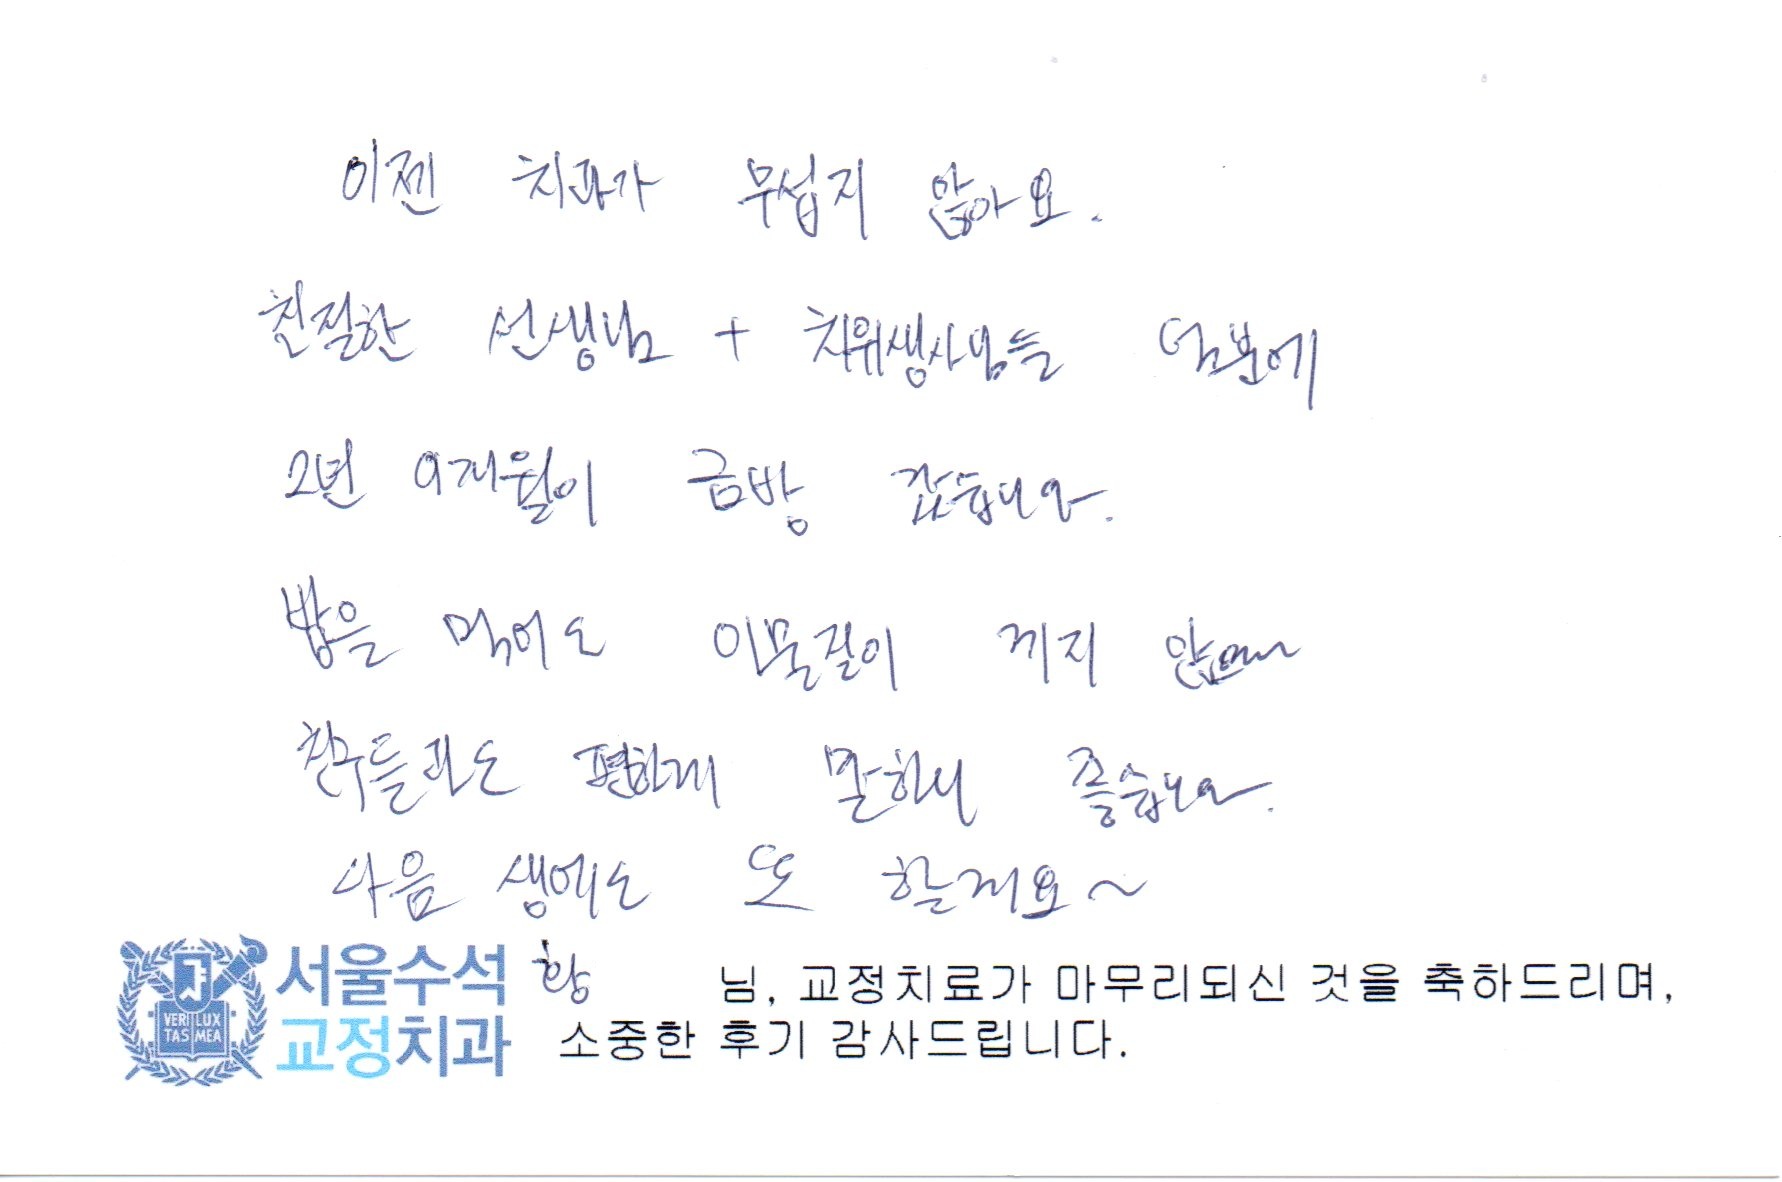 이젠 치과가 무섭지 않아요.
친절한 선생님 + 치위생사님들 덕분에
2년 9개월이 금방 갔습니다.
밥을 먹어도 이물질이 끼지 않고
친구들과도 편하게 말하니 좋습니다.
다음 생에도 또 할게요~
서울수석 황 님, 교정치료가 마무리되신 것을 축하드리며,
교정치과 소중한 후기 감사드립니다.
VERI LUX
TAS MEA